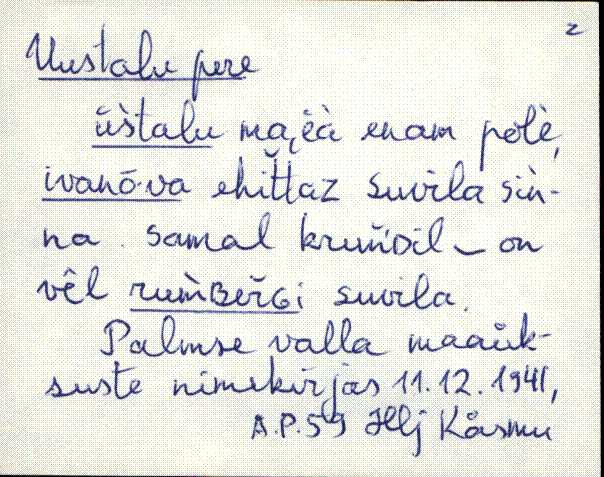 2
Uustalu pere
üštalu maја enam polè,
ivanō·va ehiťtaz suvila sìn-
na. samal kruńDil – on
vêl rumBerGi suvila.
Palmse valla maaük-
suste nimekirjas 11.12.1941,
A.P.59 Hlj Käsmu